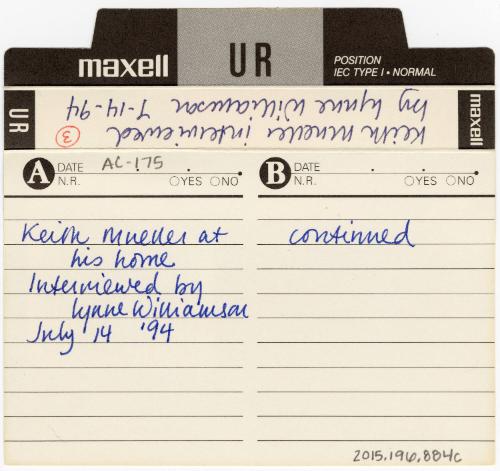 maxell
UR
POSITION
IEC TYPE I • NORMAL
UR
Keith Mueller interviewed
by Lynne Williamson 7-14-94
3
maxell
A
DATE AC-175
N.R. YES NO
Keith Mueller at
his home
Interviewed by
Lynne Williamson
July 14 '94
B
DATE . .
N.R. YES NO
continued
2015.196.884c